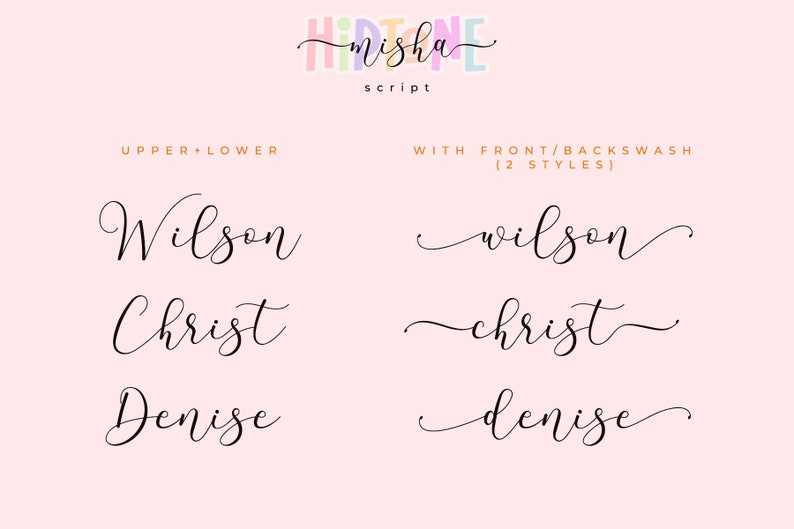 HiDTONE
misha
script
UPPER+LOWER
WITH FRONT/BACKSWASH
(2 STYLES)
Wilson
wilson
Christ
christ
Denise
denise